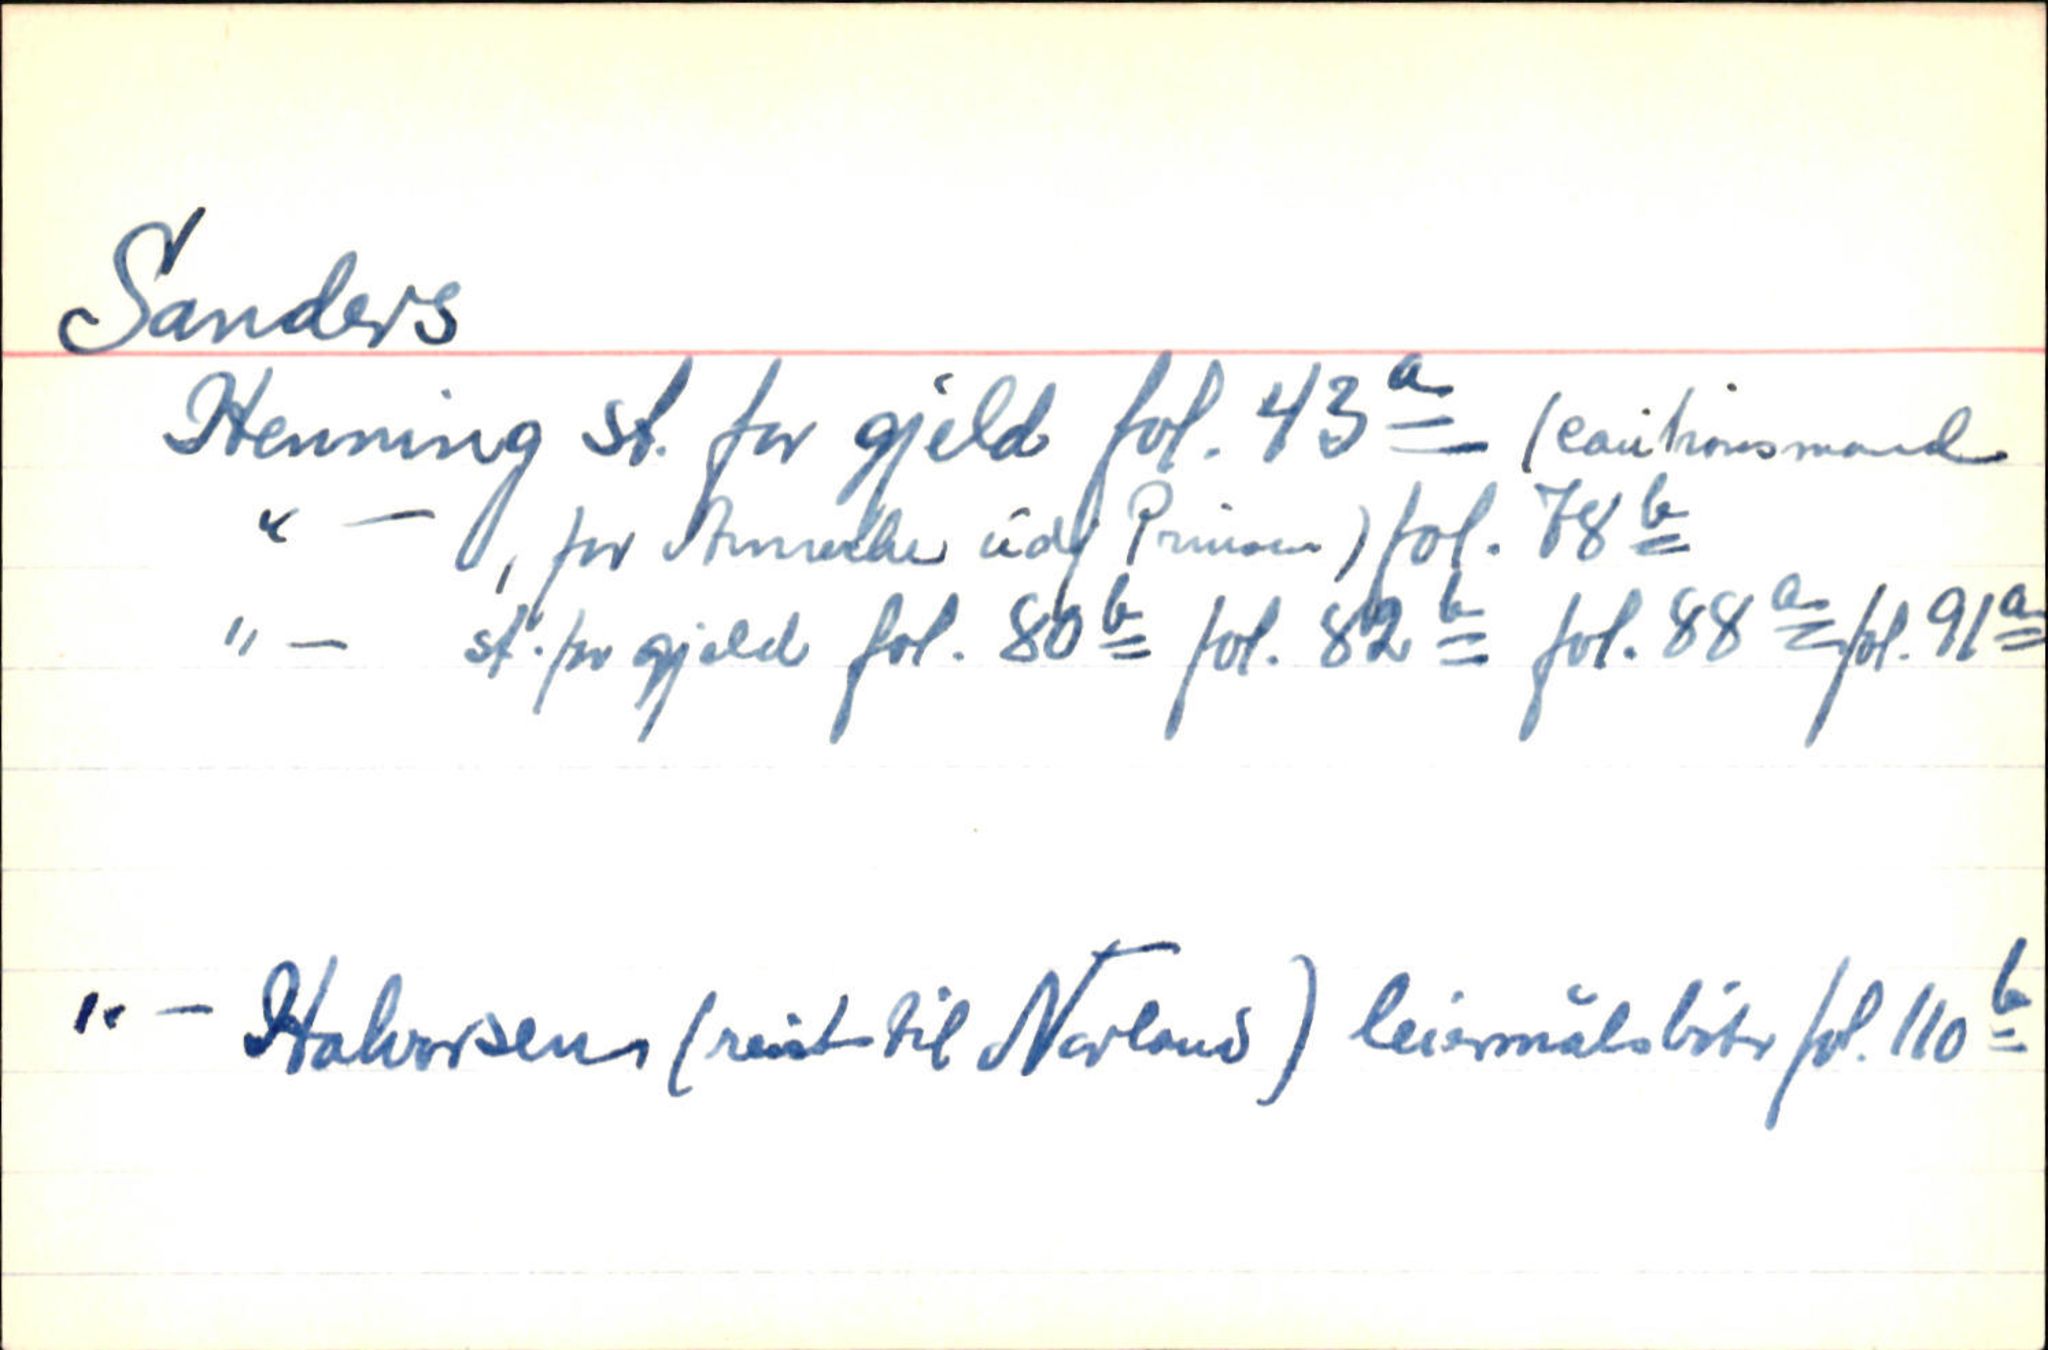 Sanders
Henning st. for gjeld fol. 43ª (cautionsmand
" — , for Annecke udj Prinsen) fol. 78ᵇ
" — st. for gjeld fol. 80ᵇ fol. 82ᵇ fol. 88ª fol. 91ª
" — Halvorsen (reist til Norland) leiermålsbøter fol. 110ᵇ